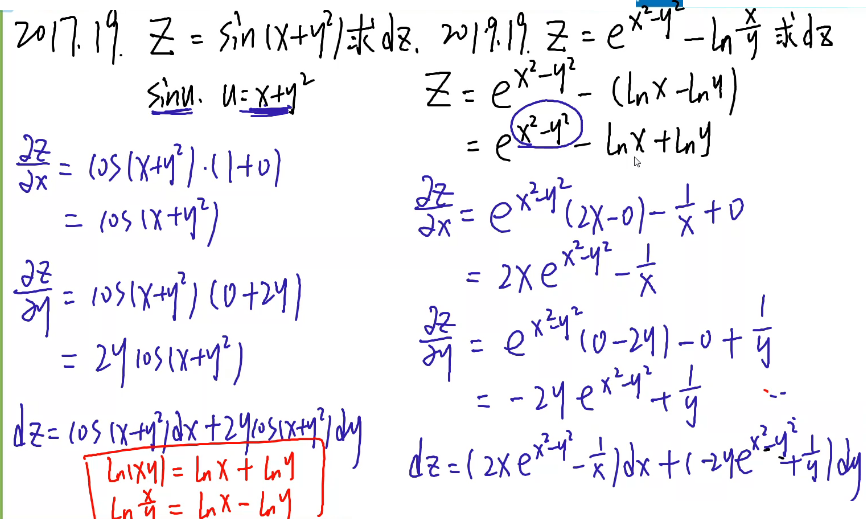 2017.19. Z = sin(x+y²)求dz.
sinu. u=x+y²
∂z/∂x = cos(x+y²)·(1+0)
= cos(x+y²)
∂z/∂y = cos(x+y²)(0+2y)
= 2y cos(x+y²)
dz = cos(x+y²)dx+2ycos(x+y²)dy
ln(xy) = lnx + lny
ln x/y = lnx - lny
2019.19. Z = e^(x²-y²) - ln x/y 求dz
Z = e^(x²-y²) - (lnx - lny)
= e^(x²-y²) - lnx + lny
∂z/∂x = e^(x²-y²)(2x-0) - 1/x + 0
= 2x e^(x²-y²) - 1/x
∂z/∂y = e^(x²-y²)(0-2y) - 0 + 1/y
= -2y e^(x²-y²) + 1/y
dz = (2xe^(x²-y²) - 1/x)dx + (-2ye^(x²-y²) + 1/y)dy